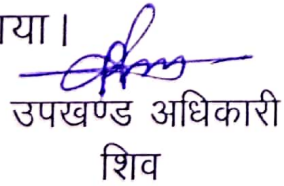 या।
उपखण्ड अधिकारी
शिव